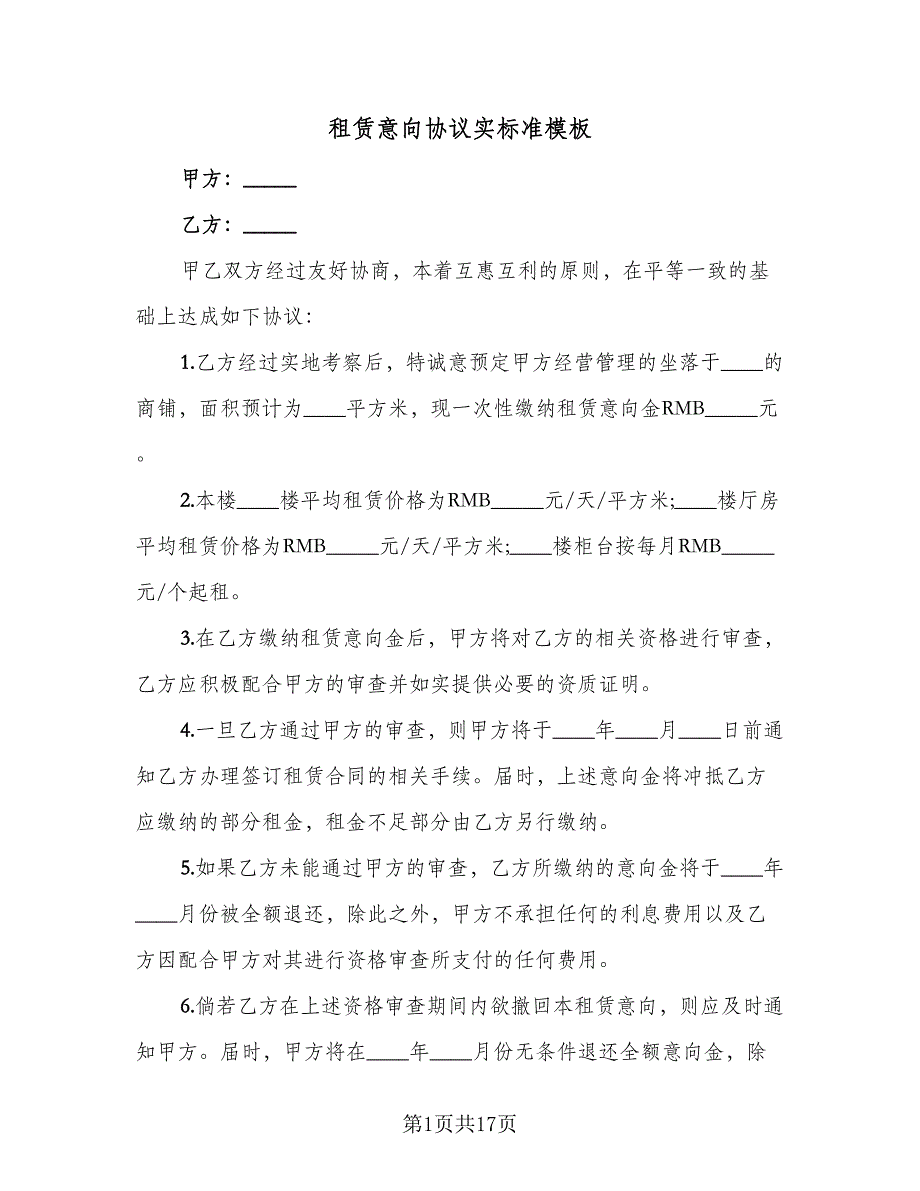 租赁意向协议实标准模板
甲方：_____
乙方：_____
甲乙双方经过友好协商，本着互惠互利的原则，在平等一致的基
础上达成如下协议：
1.乙方经过实地考察后，特诚意预定甲方经营管理的坐落于____的
商铺，面积预计为____平方米，现一次性缴纳租赁意向金RMB_____元
。
2.本楼____楼平均租赁价格为RMB_____元/天/平方米;____楼厅房
平均租赁价格为RMB_____元/天/平方米;____楼柜台按每月RMB_____
元/个起租。
3.在乙方缴纳租赁意向金后，甲方将对乙方的相关资格进行审查，
乙方应积极配合甲方的审查并如实提供必要的资质证明。
4.一旦乙方通过甲方的审查，则甲方将于____年____月____日前通
知乙方办理签订租赁合同的相关手续。届时，上述意向金将冲抵乙方
应缴纳的部分租金，租金不足部分由乙方另行缴纳。
5.如果乙方未能通过甲方的审查，乙方所缴纳的意向金将于____年
____月份被全额退还，除此之外，甲方不承担任何的利息费用以及乙
方因配合甲方对其进行资格审查所支付的任何费用。
6.倘若乙方在上述资格审查期间内欲撤回本租赁意向，则应及时通
知甲方。届时，甲方将在____年____月份无条件退还全额意向金，除
第1页共17页